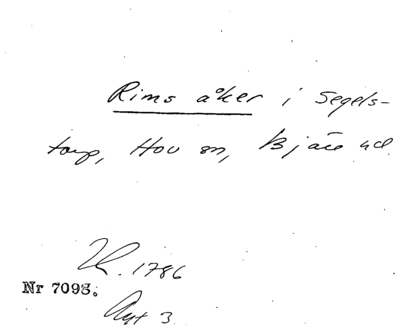 Rims åker i Segels-
torp, Hov sn, Bjäre hd
1786
Nr 7093.
Akt 3